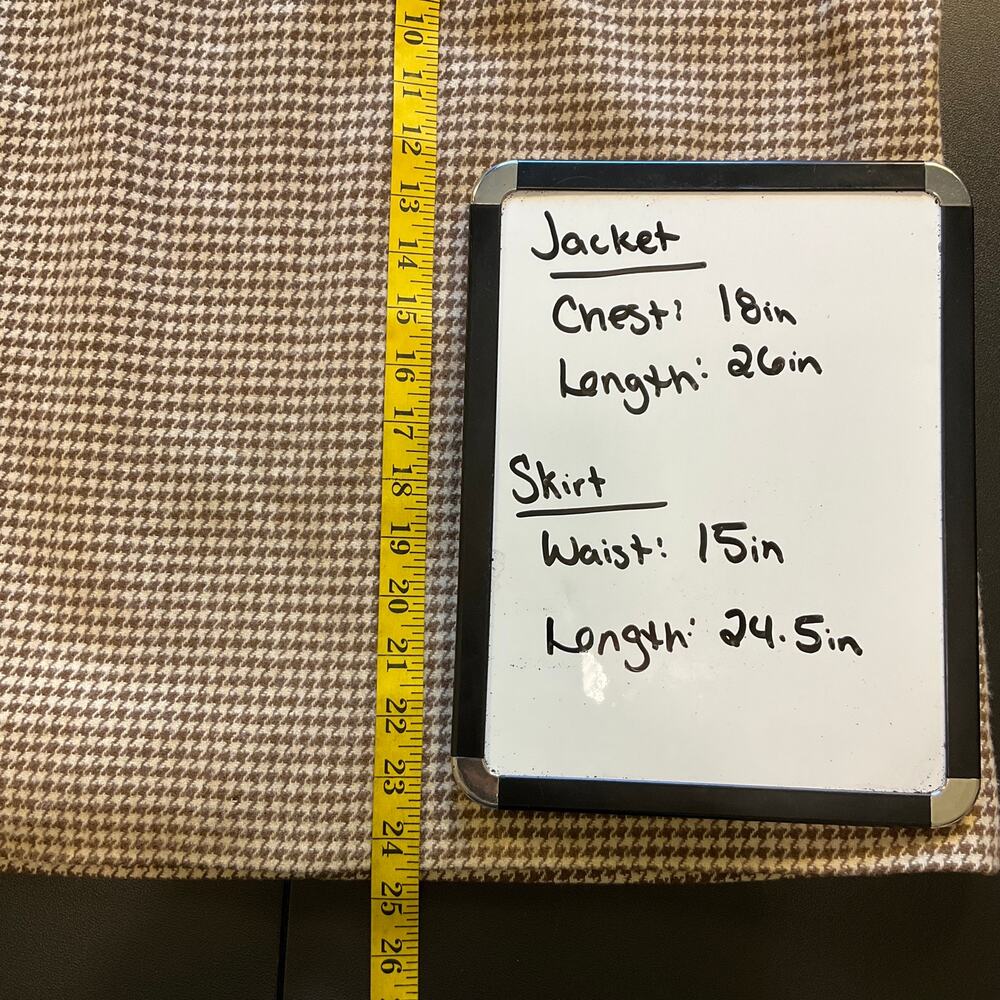 10
11
12
13
14
15
16
17
18
19
20
21
22
23
24
25
26
Jacket
Chest: 18in
Length: 26in
Skirt
Waist: 15in
Length: 24.5in